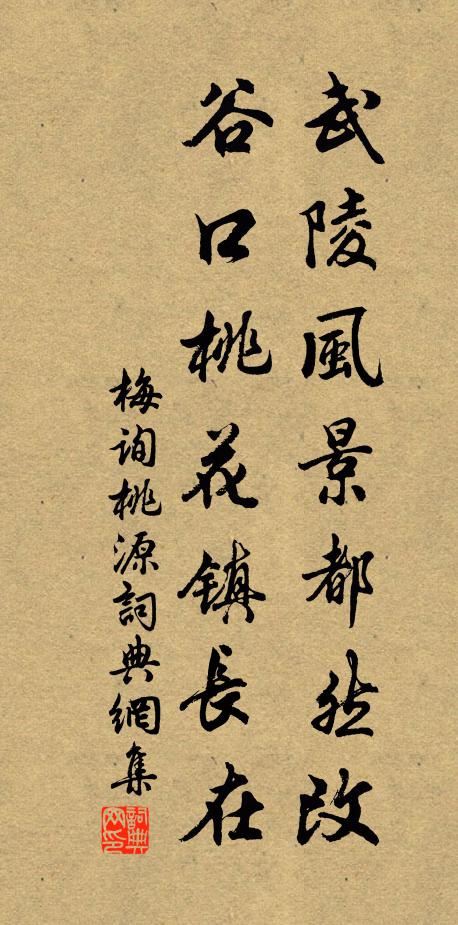 武陵風景都然改
谷口桃花鎮長在
梅詢桃源詞典網集
詞典網印